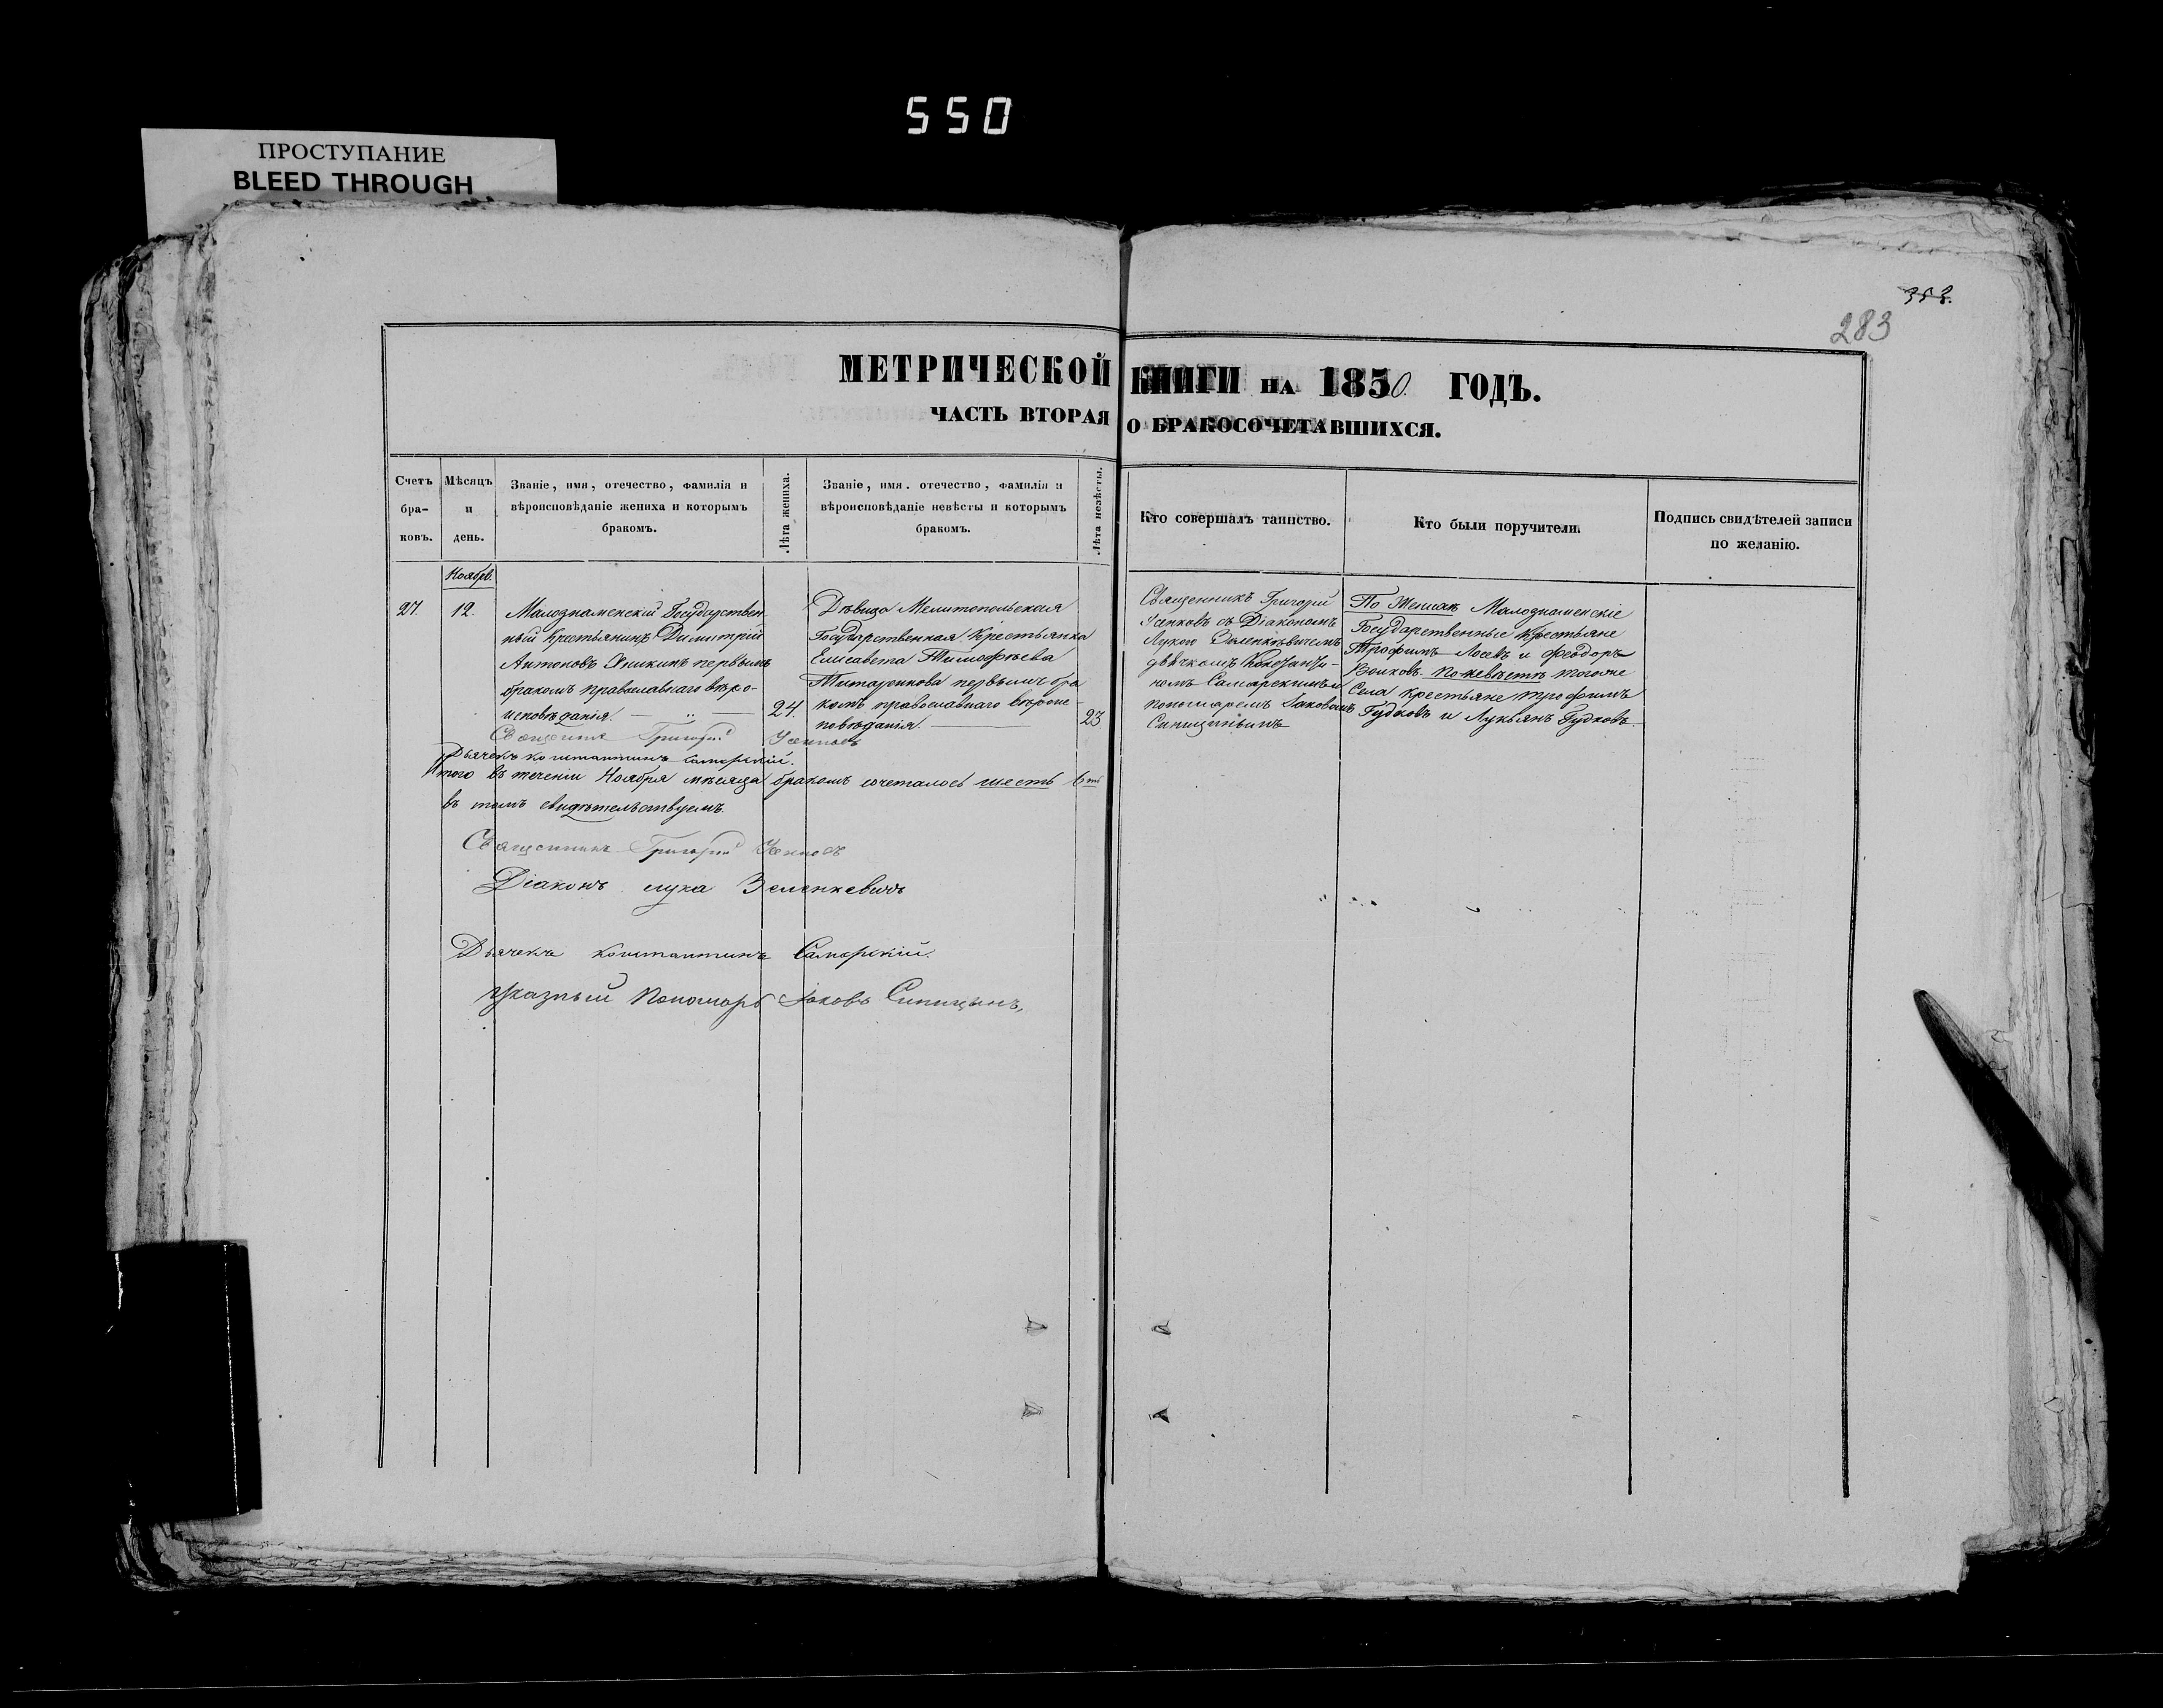 550
ПРОСТУПАНИЕ
BLEED THROUGH
353.
283
МЕТРИЧЕСКОЙ КНИГИ НА 1850. ГОДЪ.
ЧАСТЬ ВТОРАЯ О БРАКОСОЧЕТАВШИХСЯ.
Счетъ
бра-
ковъ.
Мѣсяцъ
и
день.
Званіе, имя, отечество, фамилія и
вѣроисповѣданіе жениха и которымъ
бракомъ.
Лѣта жениха.
Званіе, имя. отечество, фамилія и
вѣроисповѣданіе невѣсты и которымъ
бракомъ.
Лѣта невѣсты.
Кто совершалъ таинство.
Кто были поручители.
Подпись свидѣтелей записи
по желанію.
Ноябрь.
27.
12.
Малознаменскій Государствен-
ный Крестьянинъ Димитрій
Антоновъ первымъ
бракомъ православнаго вѣро-
исповѣданія.
24.
Дѣвица Мелитопольская
Государственная Крестьянка
Елисавета Тимофѣева
первымъ бра
комъ православнаго вѣроис-
повѣданія.
23.
Священникъ Григорій
съ Діакономъ
Лукою Зеленкевичемъ
дьячкомъ Константи-
номъ Самарскимъ и
пономаремъ Іаковомъ
Синицынымъ
По Женихѣ Малознаменскіе
Государственные Крестьяне
Трофимъ Лосевъ и Феодоръ
Волковъ. По невѣстѣ тогоже
Села Крестьяне Трофимъ
Гудковъ и Лукьянъ Гудковъ.
Священникъ Григорій
Дьячекъ Константинъ Самарскій.
Итого въ теченіи Ноября мѣсяца бракомъ сочеталось шесть 6ть
въ томъ свидѣтельствуемъ.
Священникъ Григорій
Діаконъ Лука Зеленкевичь
Дьячекъ Константинъ Самарскій.
Указный Пономарь Іаковъ Синицынъ,